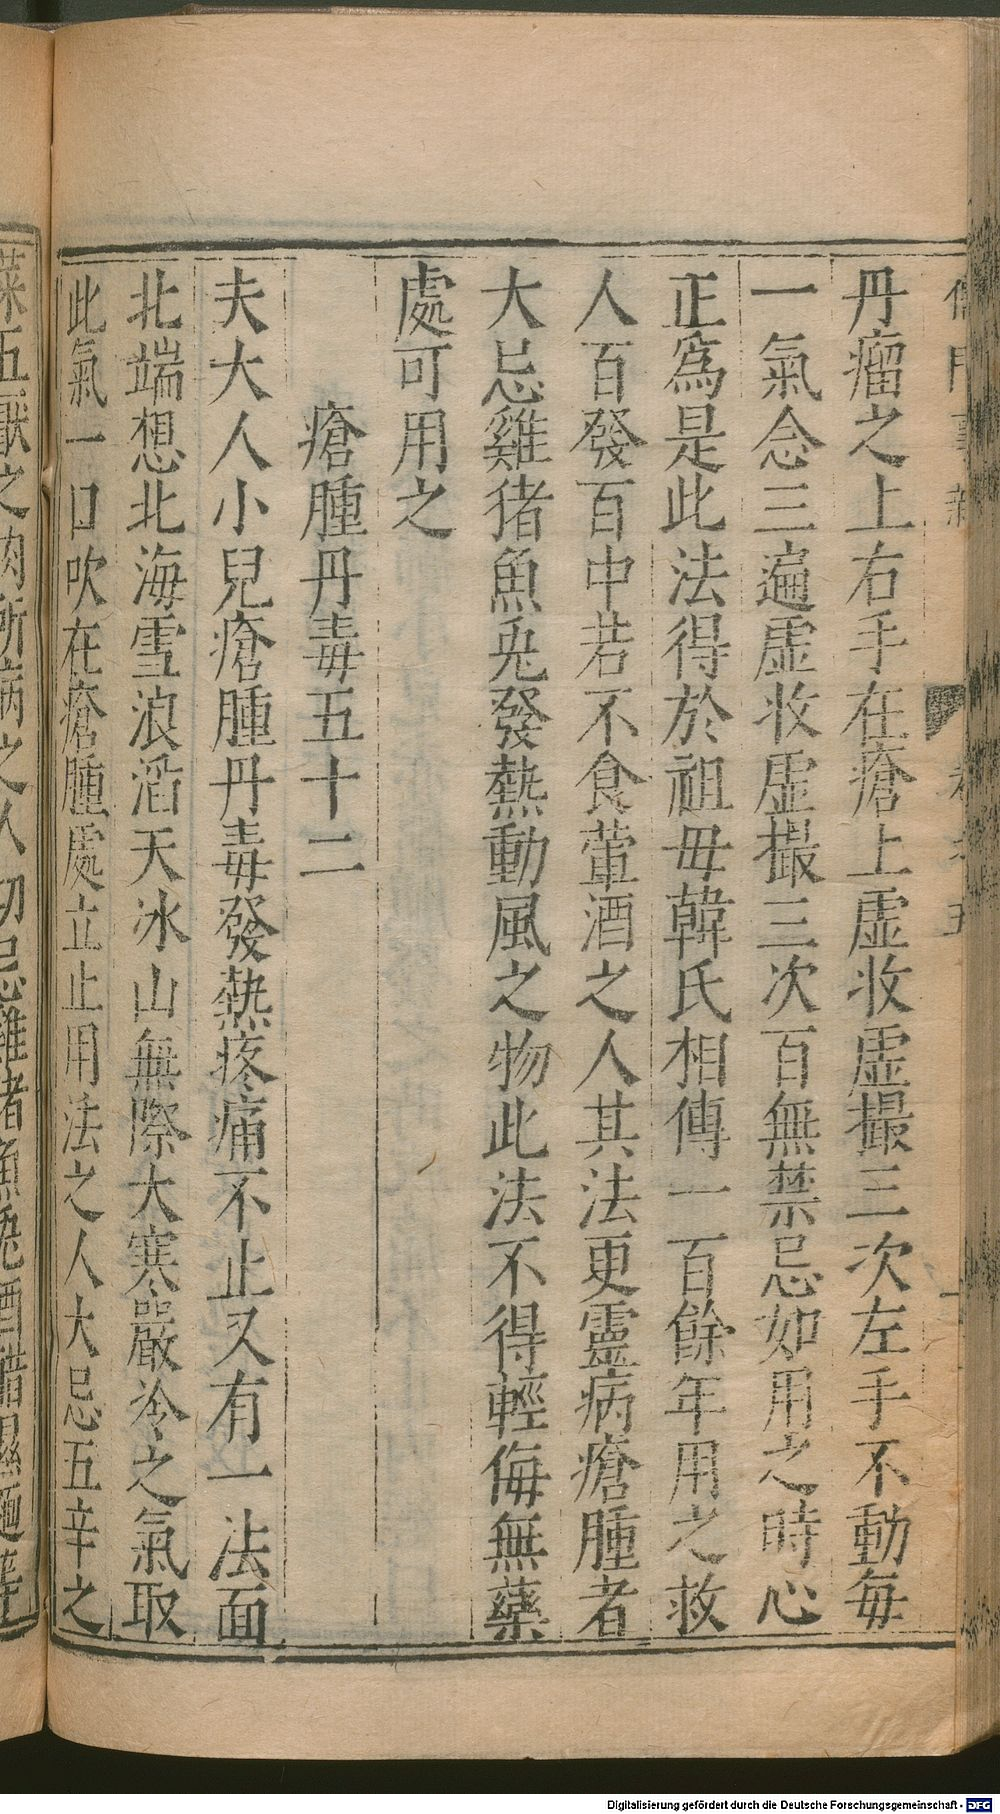 丹瘤之上右手在瘡上虛收虛撮三次左手不動每
一氣念三遍虛收虛撮三次百無禁忌如用之時心
正為是此法得於祖母韓氏相傳一百餘年用之救
人百發百中若不食葷酒之人其法更靈病瘡腫者
大忌雞猪魚兎發熱動風之物此法不得輕侮無藥
處可用之
瘡腫丹毒五十二
夫大人小兒瘡腫丹毒發熱疼痛不止又有一法面
北端想北海雪浪滔天冰山無際大寒嚴冷之氣取
此氣一口吹在瘡腫處立止用法之人大忌五辛之
菜五厭之肉所病之人切忌雞猪魚兎酒醋濕麵等
Digitalisierung gefördert durch die Deutsche Forschungsgemeinschaft - DFG